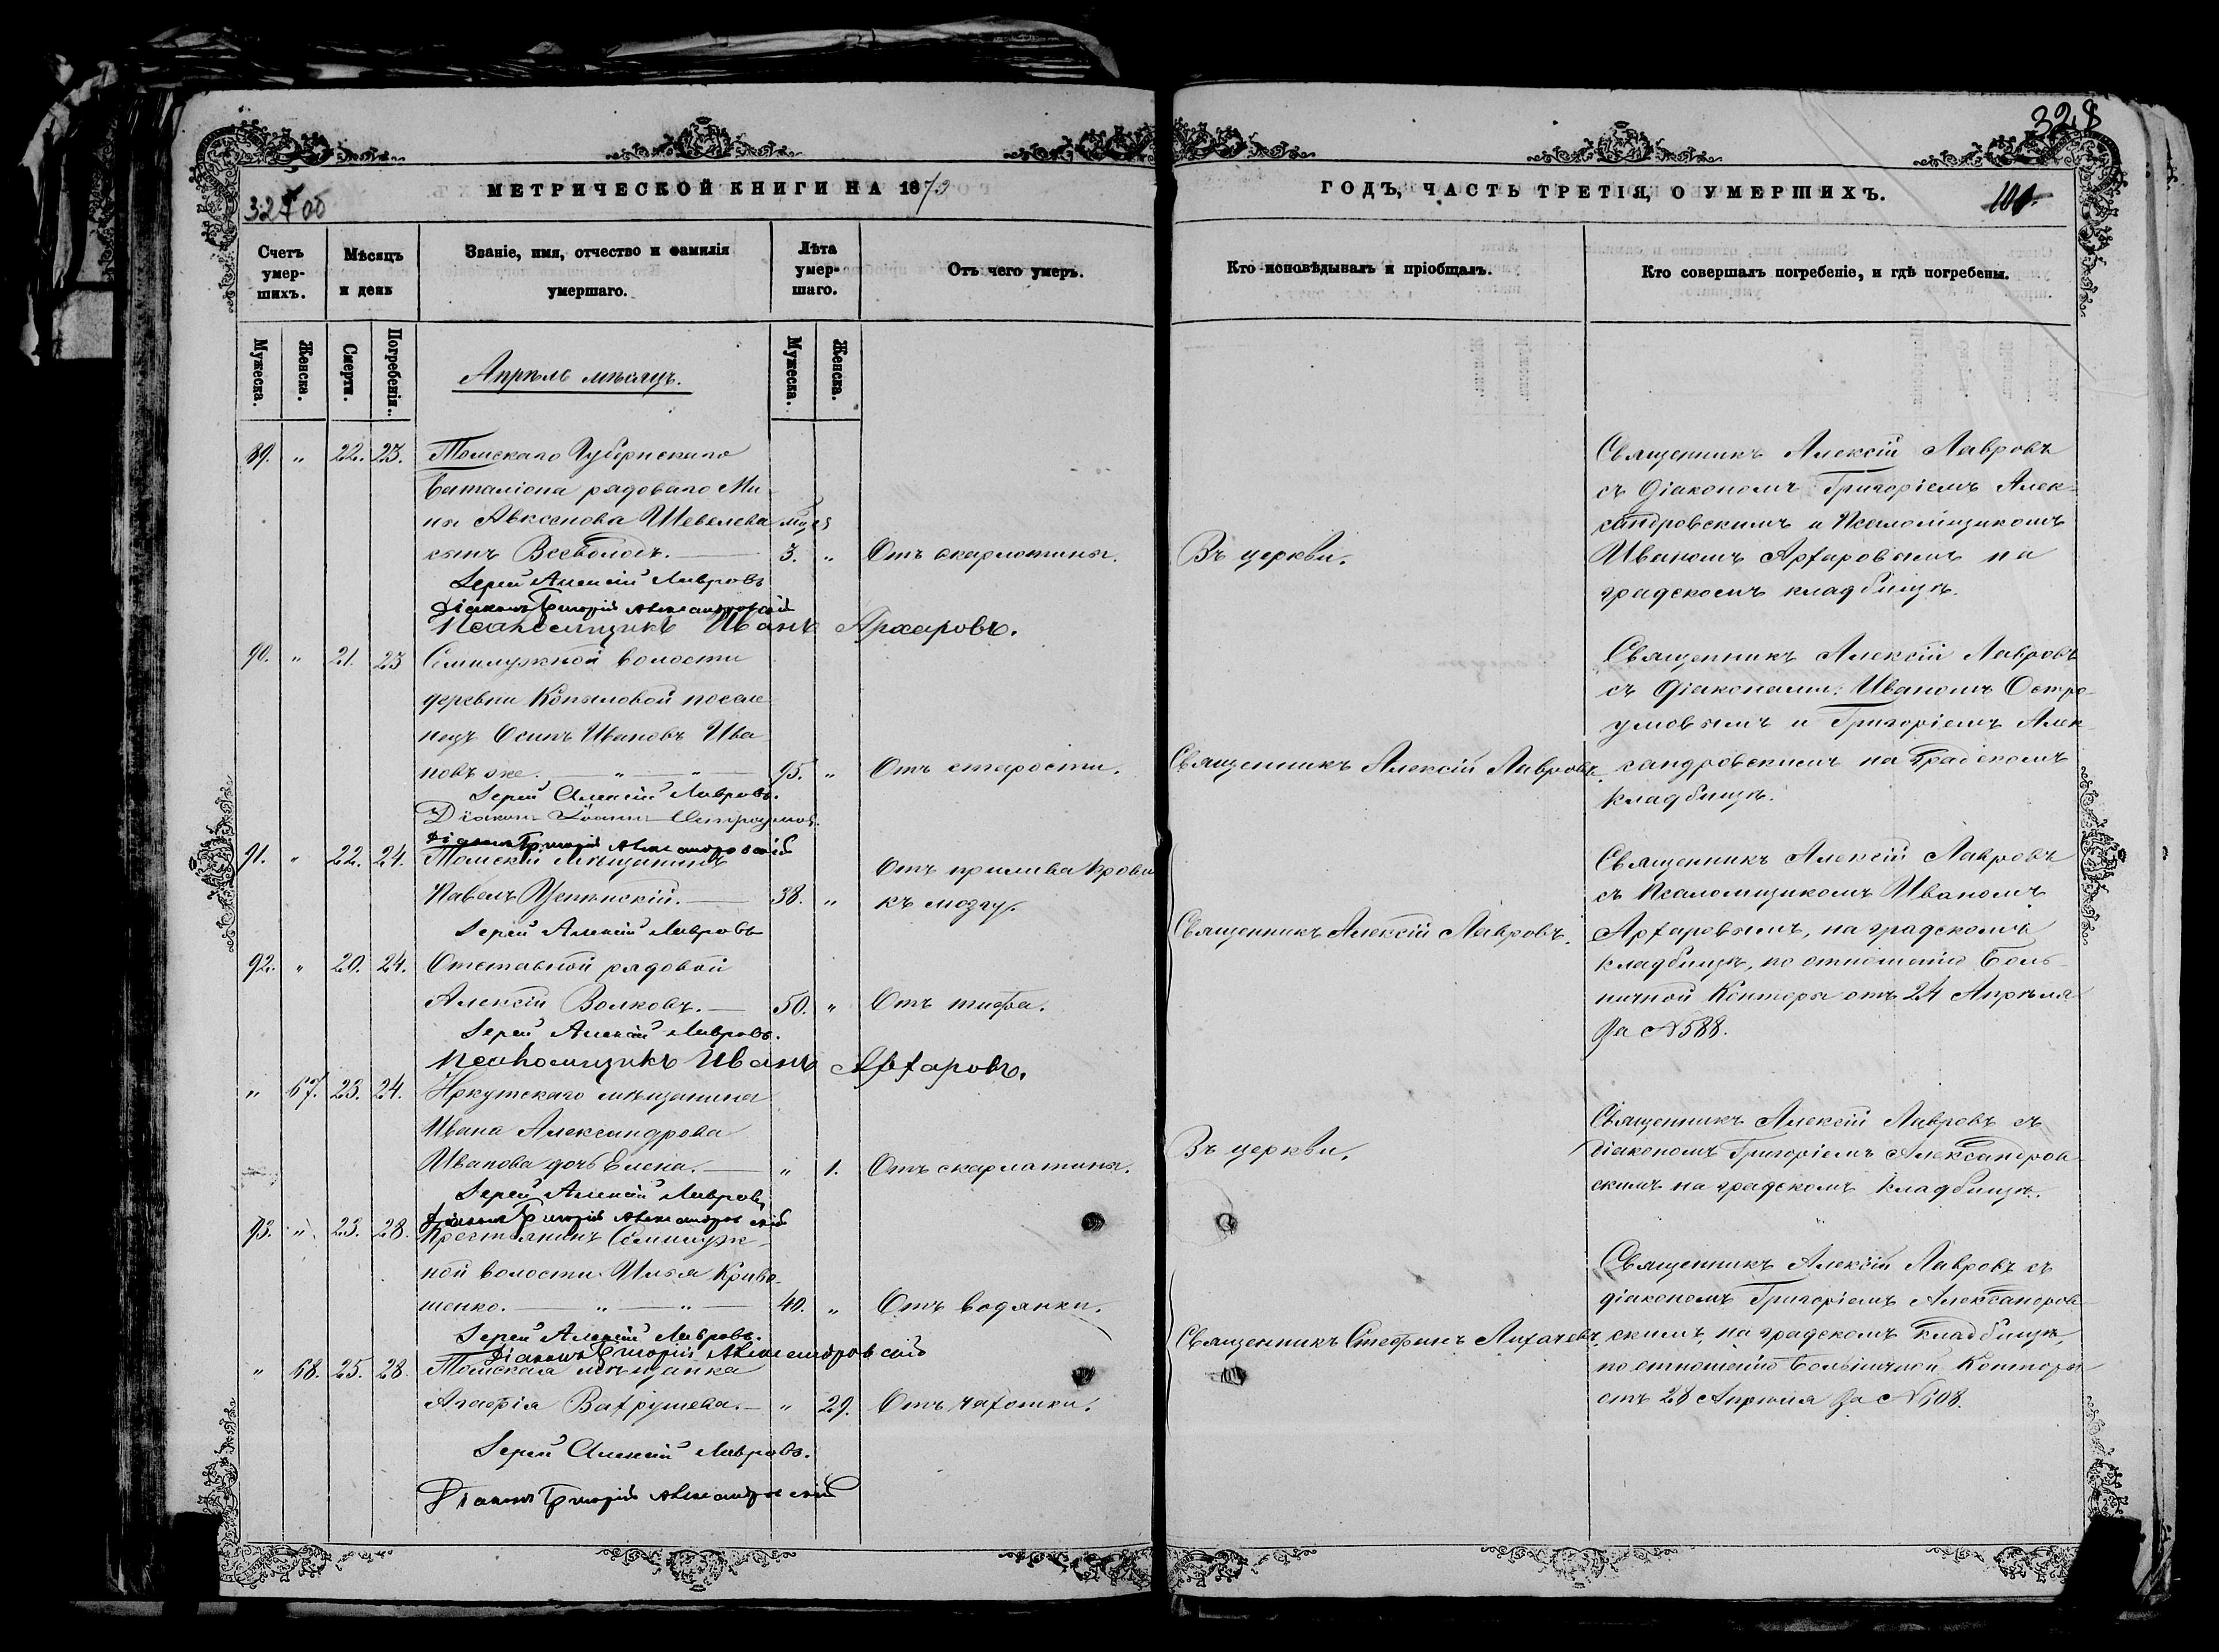 327 об
МЕТРИЧЕСКОЙ КНИГИ НА 1873
Счетъ умер-шихъ.
Мѣсяцъ и день
Званіе, имя, отчество и фамилія умершаго.
Лѣта умер-шаго.
Отъ чего умеръ.
Мужеска.
Женска.
Смерти.
Погребенія.
Мужеска.
Женска.
Апрѣль мѣсяцъ.
89. " 22. 23. Томскаго Губернскаго
баталіона рядоваго Ми-
ны Авксенова Шевелева
сынъ Всеволодъ. 3. " Отъ скарлатины.
Іерей Алексій Лавровъ
Діаконъ Григорій Александровскій
Псаломщикъ Иванъ Архаровъ.
90. " 21. 23 Семилужной волости
деревни Копыловой поселе-
нецъ Осипъ Ивановъ Ива-
новъ же. " " 95. " Отъ старости.
Іерей Алексій Лавровъ.
Діаконъ Іоаннъ Остроумовъ.
Діаконъ Григорій Александровскій
91. " 22. 24. Томскій мѣщанинъ
Отъ прилива крови
Павелъ Успенскій. 38. " къ мозгу.
Іерей Алексій Лавровъ
92. " 20. 24. Отставной рядовой
Алексій Волковъ. 50. " Отъ тифа.
Іерей Алексій Лавровъ.
Псаломщикъ Иванъ Архаровъ.
" 67. 23. 24. Иркутскаго мѣщанина
Ивана Александрова
Иванова дочь Елена. " 1. Отъ скарлатины.
Іерей Алексій Лавровъ
Діаконъ Григорій Александровскій
93. " 23. 28. Крестьянинъ Семилуж-
ной волости Илья Криво-
шенко. " " 40. " Отъ водянки.
Іерей Алексій Лавровъ.
Діаконъ Григорій Александровскій
" 68. 25. 28. Томская мѣщанка
Агафія Вахрушева. " 29. Отъ чахотки.
Іерей Алексій Лавровъ.
Діаконъ Григорій Александровскій
328
ГОДЪ, ЧАСТЬ ТРЕТІЯ, О УМЕРШИХЪ.
Кто исповѣдывалъ и пріобщалъ.
Кто совершалъ погребеніе, и гдѣ погребены.
Священникъ Алексій Лавровъ
съ Діакономъ Григоріемъ Алек-
сандровскимъ и Псаломщикомъ
Въ церкви. Иваномъ Архаровымъ на
градскомъ кладбищѣ.
Священникъ Алексій Лавровъ
съ Діаконами: Иваномъ Остро-
умовымъ и Григоріемъ Алек-
Священникъ Алексій Лавровъ. сандровскимъ на Градскомъ
кладбищѣ.
Священникъ Алексій Лавровъ
съ Псаломщикомъ Иваномъ
Священникъ Алексій Лавровъ. Архаровымъ, на градскомъ
кладбищѣ, по отношенію Боль-
ничной Конторы отъ 24 Апрѣля
За №588.
Священникъ Алексій Лавровъ съ
Въ церкви. Діакономъ Григоріемъ Александров-
скимъ на градскомъ кладбищѣ.
Священникъ Алексій Лавровъ съ
діакономъ Григоріемъ Александров-
Священникъ Стефанъ Лихачевъ. скимъ, на градскомъ кладбищѣ,
по отношенію Больничной Конторы
отъ 28 Апрѣля За №608.